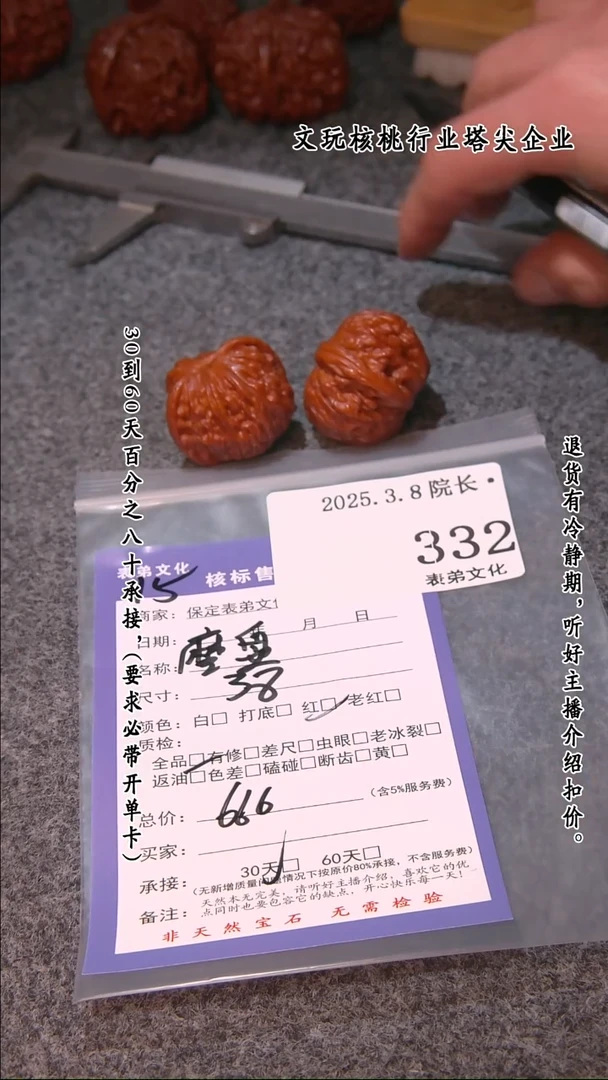 文玩核桃行业塔尖企业
30到60天百分之八十承接，(要求必带开单卡)
退货有冷静期，听好主播介绍扣价。
2025.3.8院长
332
表弟文化
表弟文化 核标售
15
商家：保定表弟文化
日期： 年 月 日
名称：磨盘
尺寸：38
颜色：白□ 打底□ 红□ 老红□
质检：
全品□有修□差尺□虫眼□老冰裂□
返油□色差□磕碰□断齿□黄□
总价：666 (含5%服务费)
买家：
承接： 30天□ 60天□
(无新增质量问题情况下按原价80%承接，不含服务费)
备注：天然本无完美，请听好主播介绍，喜欢它的优
点同时也要包容它的缺点，开心快乐每一天！
非天然宝石 无需检验